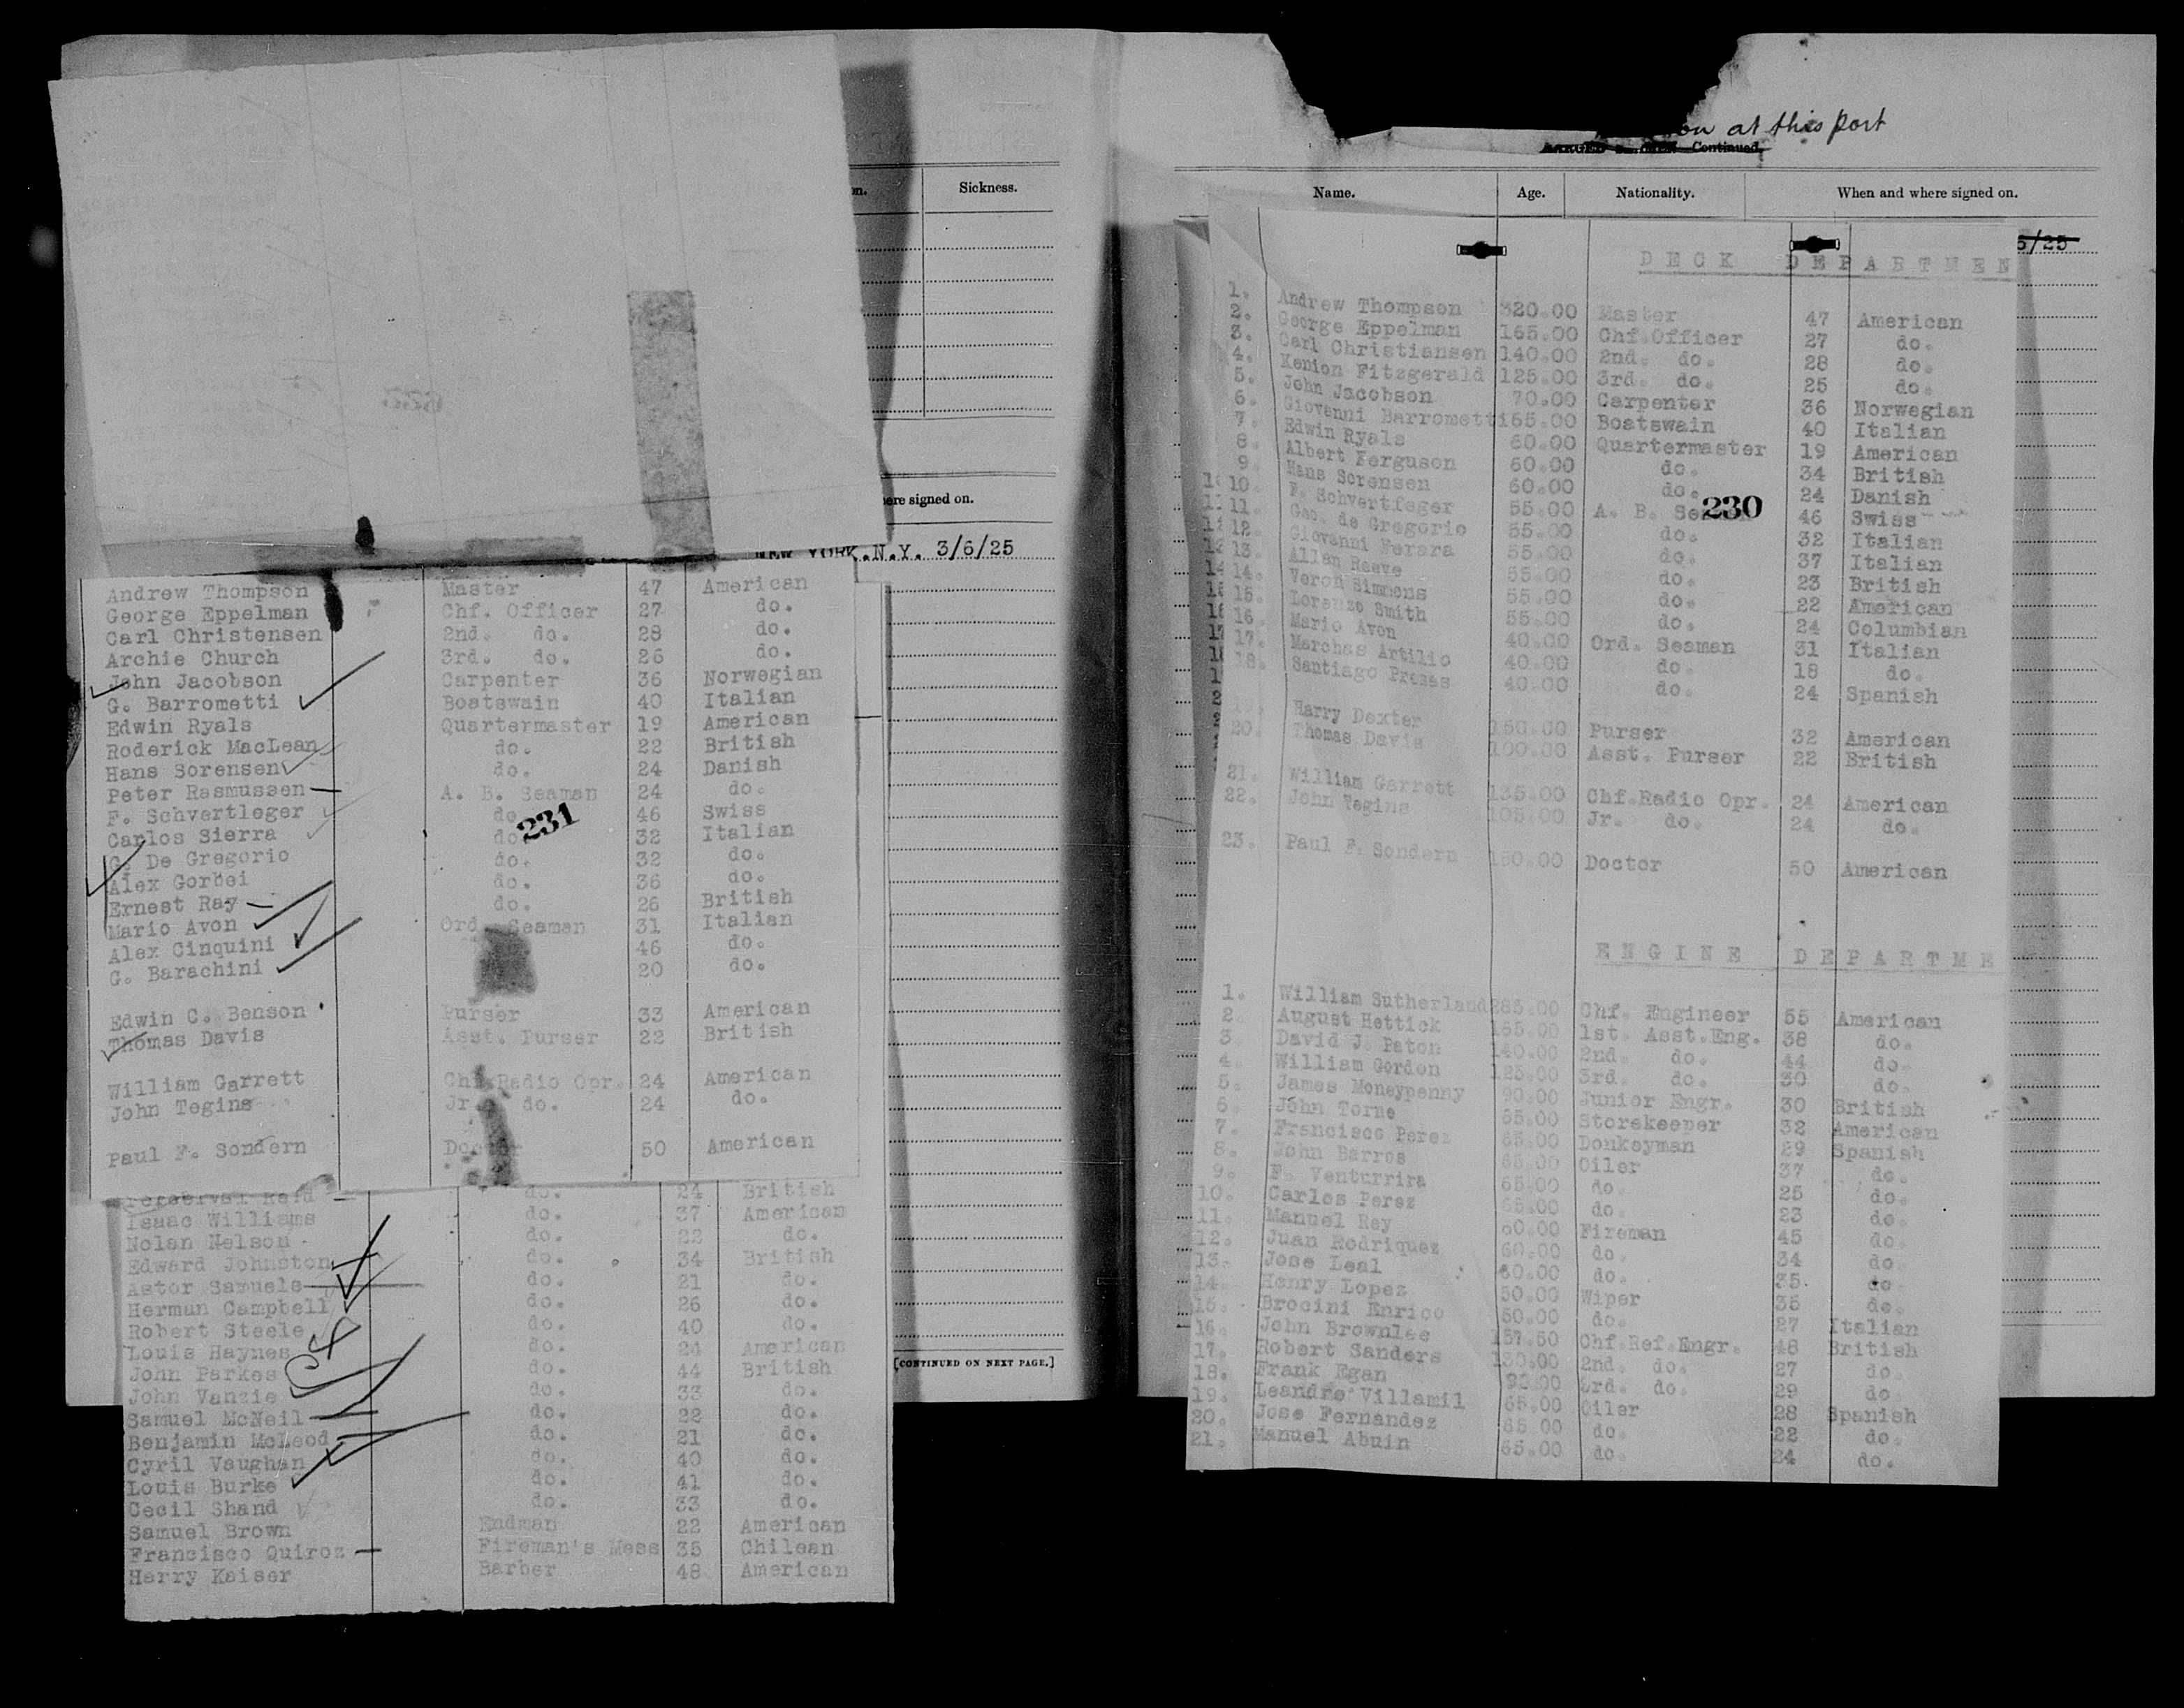 Sickness.
ere signed on.
NEW YORK.N.Y. 3/6/25
Andrew Thompson Master 47 American
George Eppelman Chf. Officer 27 do.
Carl Christensen 2nd. do. 28 do.
Archie Church 3rd. do. 26 do.
John Jacobson Carpenter 36 Norwegian
G. Barrometti Boatswain 40 Italian
Edwin Ryals Quartermaster 19 American
Roderick MacLean do. 22 British
Hans Sorensen do. 24 Danish
Peter Rasmussen A. B. Seaman 24 do.
F. Schvertleger do. 46 Swiss
231
Carlos Sierra do. 32 Italian
G. De Gregorio do. 32 do.
Alex Gorbei do. 36 do.
Ernest Ray do. 26 British
Mario Avon Ord. Seaman 31 Italian
Alex Cinquini 46 do.
G. Barachini 20 do.
Edwin C. Benson Purser 33 American
Thomas Davis Asst. Purser 22 British
William Garrett Chf.Radio Opr. 24 American
John Tegins Jr. do. 24 do.
Paul F. Sondern Doctor 50 American
do. 24 British
Isaac Williams do. 37 American
Nolan Nelson do. 22 do.
Edward Johnston do. 34 British
Astor Samuels do. 21 do.
Herman Campbell do. 26 do.
Robert Steele do. 40 do.
Louis Haynes do. 24 American
John Parkes do. 44 British
John Vanzie do. 33 do.
Samuel McNeil do. 22 do.
Benjamin McLeod do. 21 do.
Cyril Vaughan do. 40 do.
Louis Burke do. 41 do.
Cecil Shand do. 33 do.
Samuel Brown Endman 22 American
Francisco Quiroz Fireman's Mess 35 Chilean
Harry Kaiser Barber 48 American
[CONTINUED ON NEXT PAGE.]
on at this port
Continued.
Name. Age. Nationality. When and where signed on.
5/25
DECK DEPARTMEN
1. Andrew Thompson 320.00 Master 47 American
2. George Eppelman 165.00 Chf.Officer 27 do.
3. Carl Christiansen 140.00 2nd. do. 28 do.
4. Kenion Fitzgerald 125.00 3rd. do. 25 do.
5. John Jacobson 70.00 Carpenter 36 Norwegian
6. Giovanni Barrometti 65.00 Boatswain 40 Italian
7. Edwin Ryals 60.00 Quartermaster 19 American
8. Albert Ferguson 60.00 do. 34 British
9. Hans Sorensen 60.00 do. 24 Danish
230
10. F. Schvertfeger 55.00 A. B. Se 46 Swiss
11. Geo. de Gregorio 55.00 do. 32 Italian
12. Giovanni Ferara 55.00 do. 37 Italian
13. Allan Reeve 55.00 do. 23 British
14. Veron Simmons 55.00 do. 22 American
15. Lorenzo Smith 55.00 do. 24 Columbian
16. Mario Avon 40.00 Ord. Seaman 31 Italian
17. Marchas Artilio 40.00 do. 18 do.
18. Santiago 40.00 do. 24 Spanish
19. Harry Dexter 150.00 Purser 32 American
20. Thomas Davis 100.00 Asst. Purser 22 British
21. William Garrett 135.00 Chf.Radio Opr. 24 American
22. John Tegins 105.00 Jr. do. 24 do.
23. Paul F. Sondern 150.00 Doctor 50 American
ENGINE DEPARTME
1. William Sutherland 285.00 Chf. Engineer 55 American
2. August Hettick 165.00 1st. Asst.Eng. 38 do.
3. David J. Paton 140.00 2nd. do. 44 do.
4. William Gordon 125.00 3rd. do. 30 do.
5. James Moneypenny 90.00 Junior Engr. 30 British
6. John Torne 65.00 Storekeeper 32 American
7. Francisco Perez 65.00 Donkeyman 29 Spanish
8. John Barros 65.00 Oiler 37 do.
9. F. Venturrira 65.00 do. 25 do.
10. Carlos Perez 65.00 do. 23 do.
11. Manuel Rey 60.00 Fireman 45 do.
12. Juan Rodriquez 60.00 do. 34 do.
13. Jose Leal 60.00 do. 35. do
14. Henry Lopez 50.00 Wiper 35 do.
15. Brocini Enrico 50.00 do. 27 Italian
16. John Brownlee 157.50 Chf.Ref.Engr. 48 British
17. Robert Sanders 130.00 2nd. do. 27 do.
18. Frank Egan 92.00 3rd. do. 29 do
19. Leandro Villamil 65.00 Oiler 28 Spanish
20. Jose Fernandez 65.00 do. 22 do.
21. Manuel Abuin 65.00 do. 24 do.